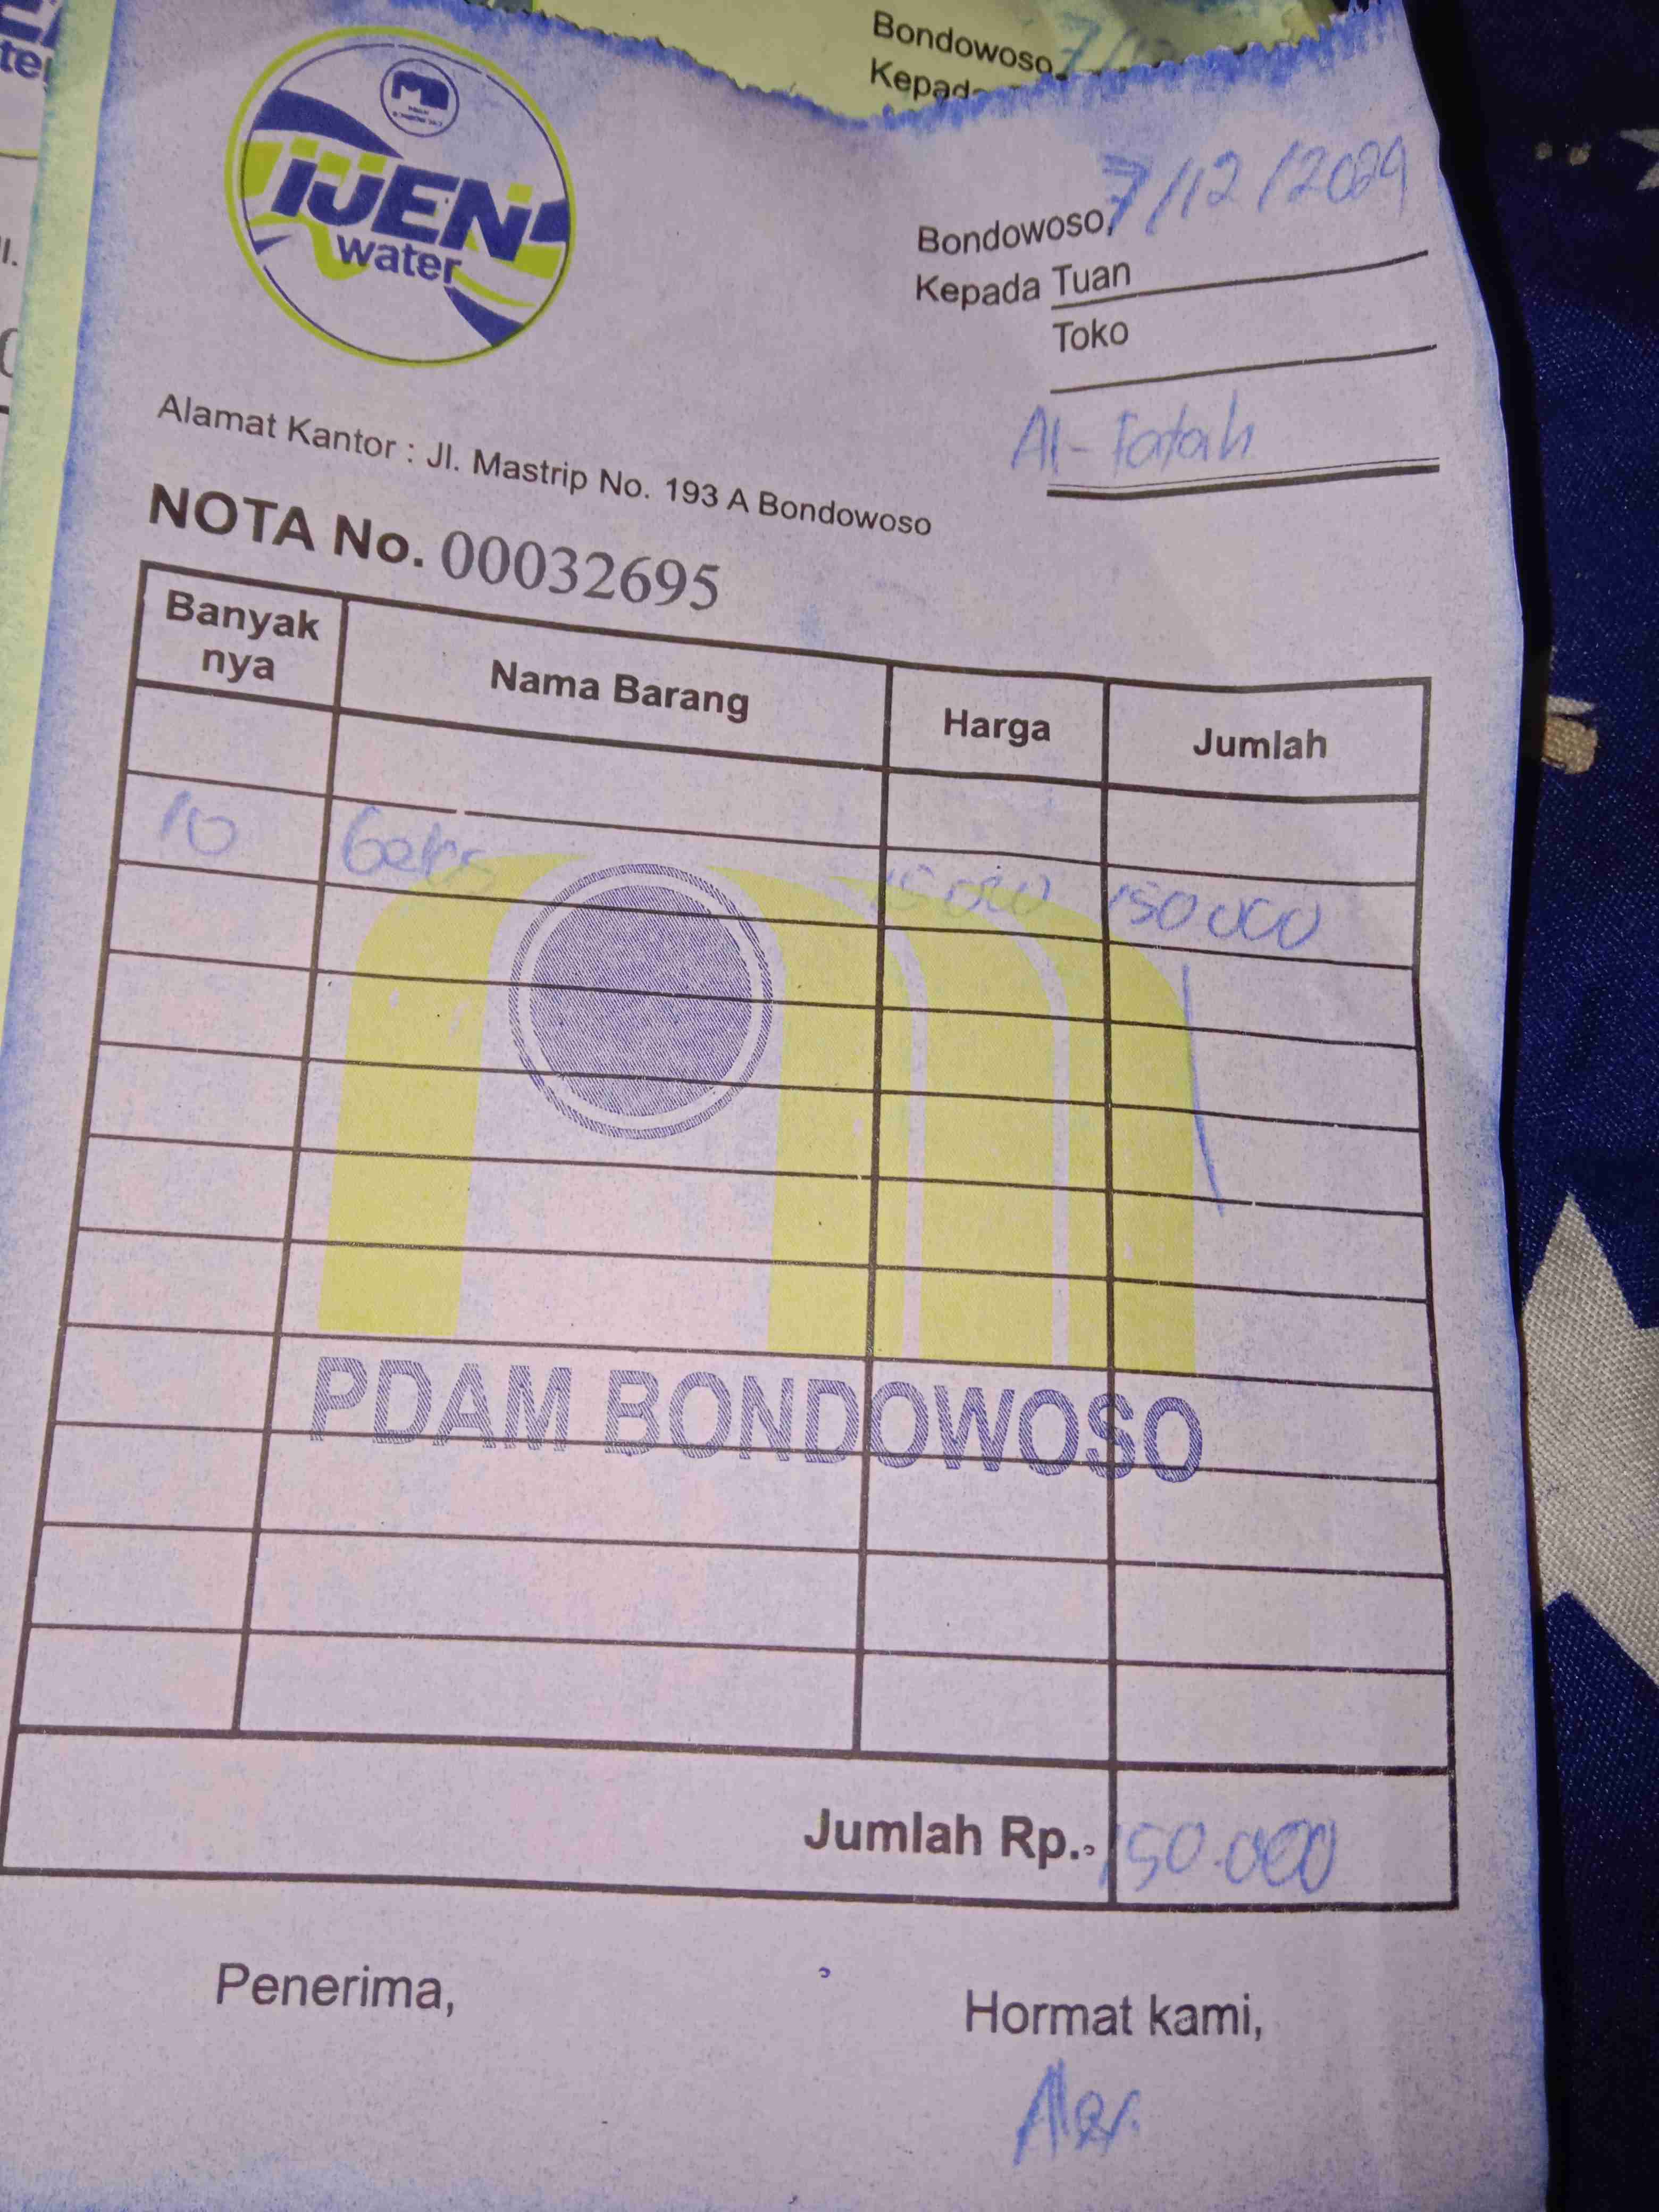 Bondowoso, 7/12
Kepada
IJEN
water
Bondowoso, 7/12/2024
Kepada Tuan
Toko
Al-Fatah
Alamat Kantor : Jl. Mastrip No. 193 A Bondowoso
NOTA No. 00032695
Banyak nya Nama Barang Harga Jumlah
10 15000 150 000
PDAM BONDOWOSO
Jumlah Rp. 150.000
Penerima,
Hormat kami,